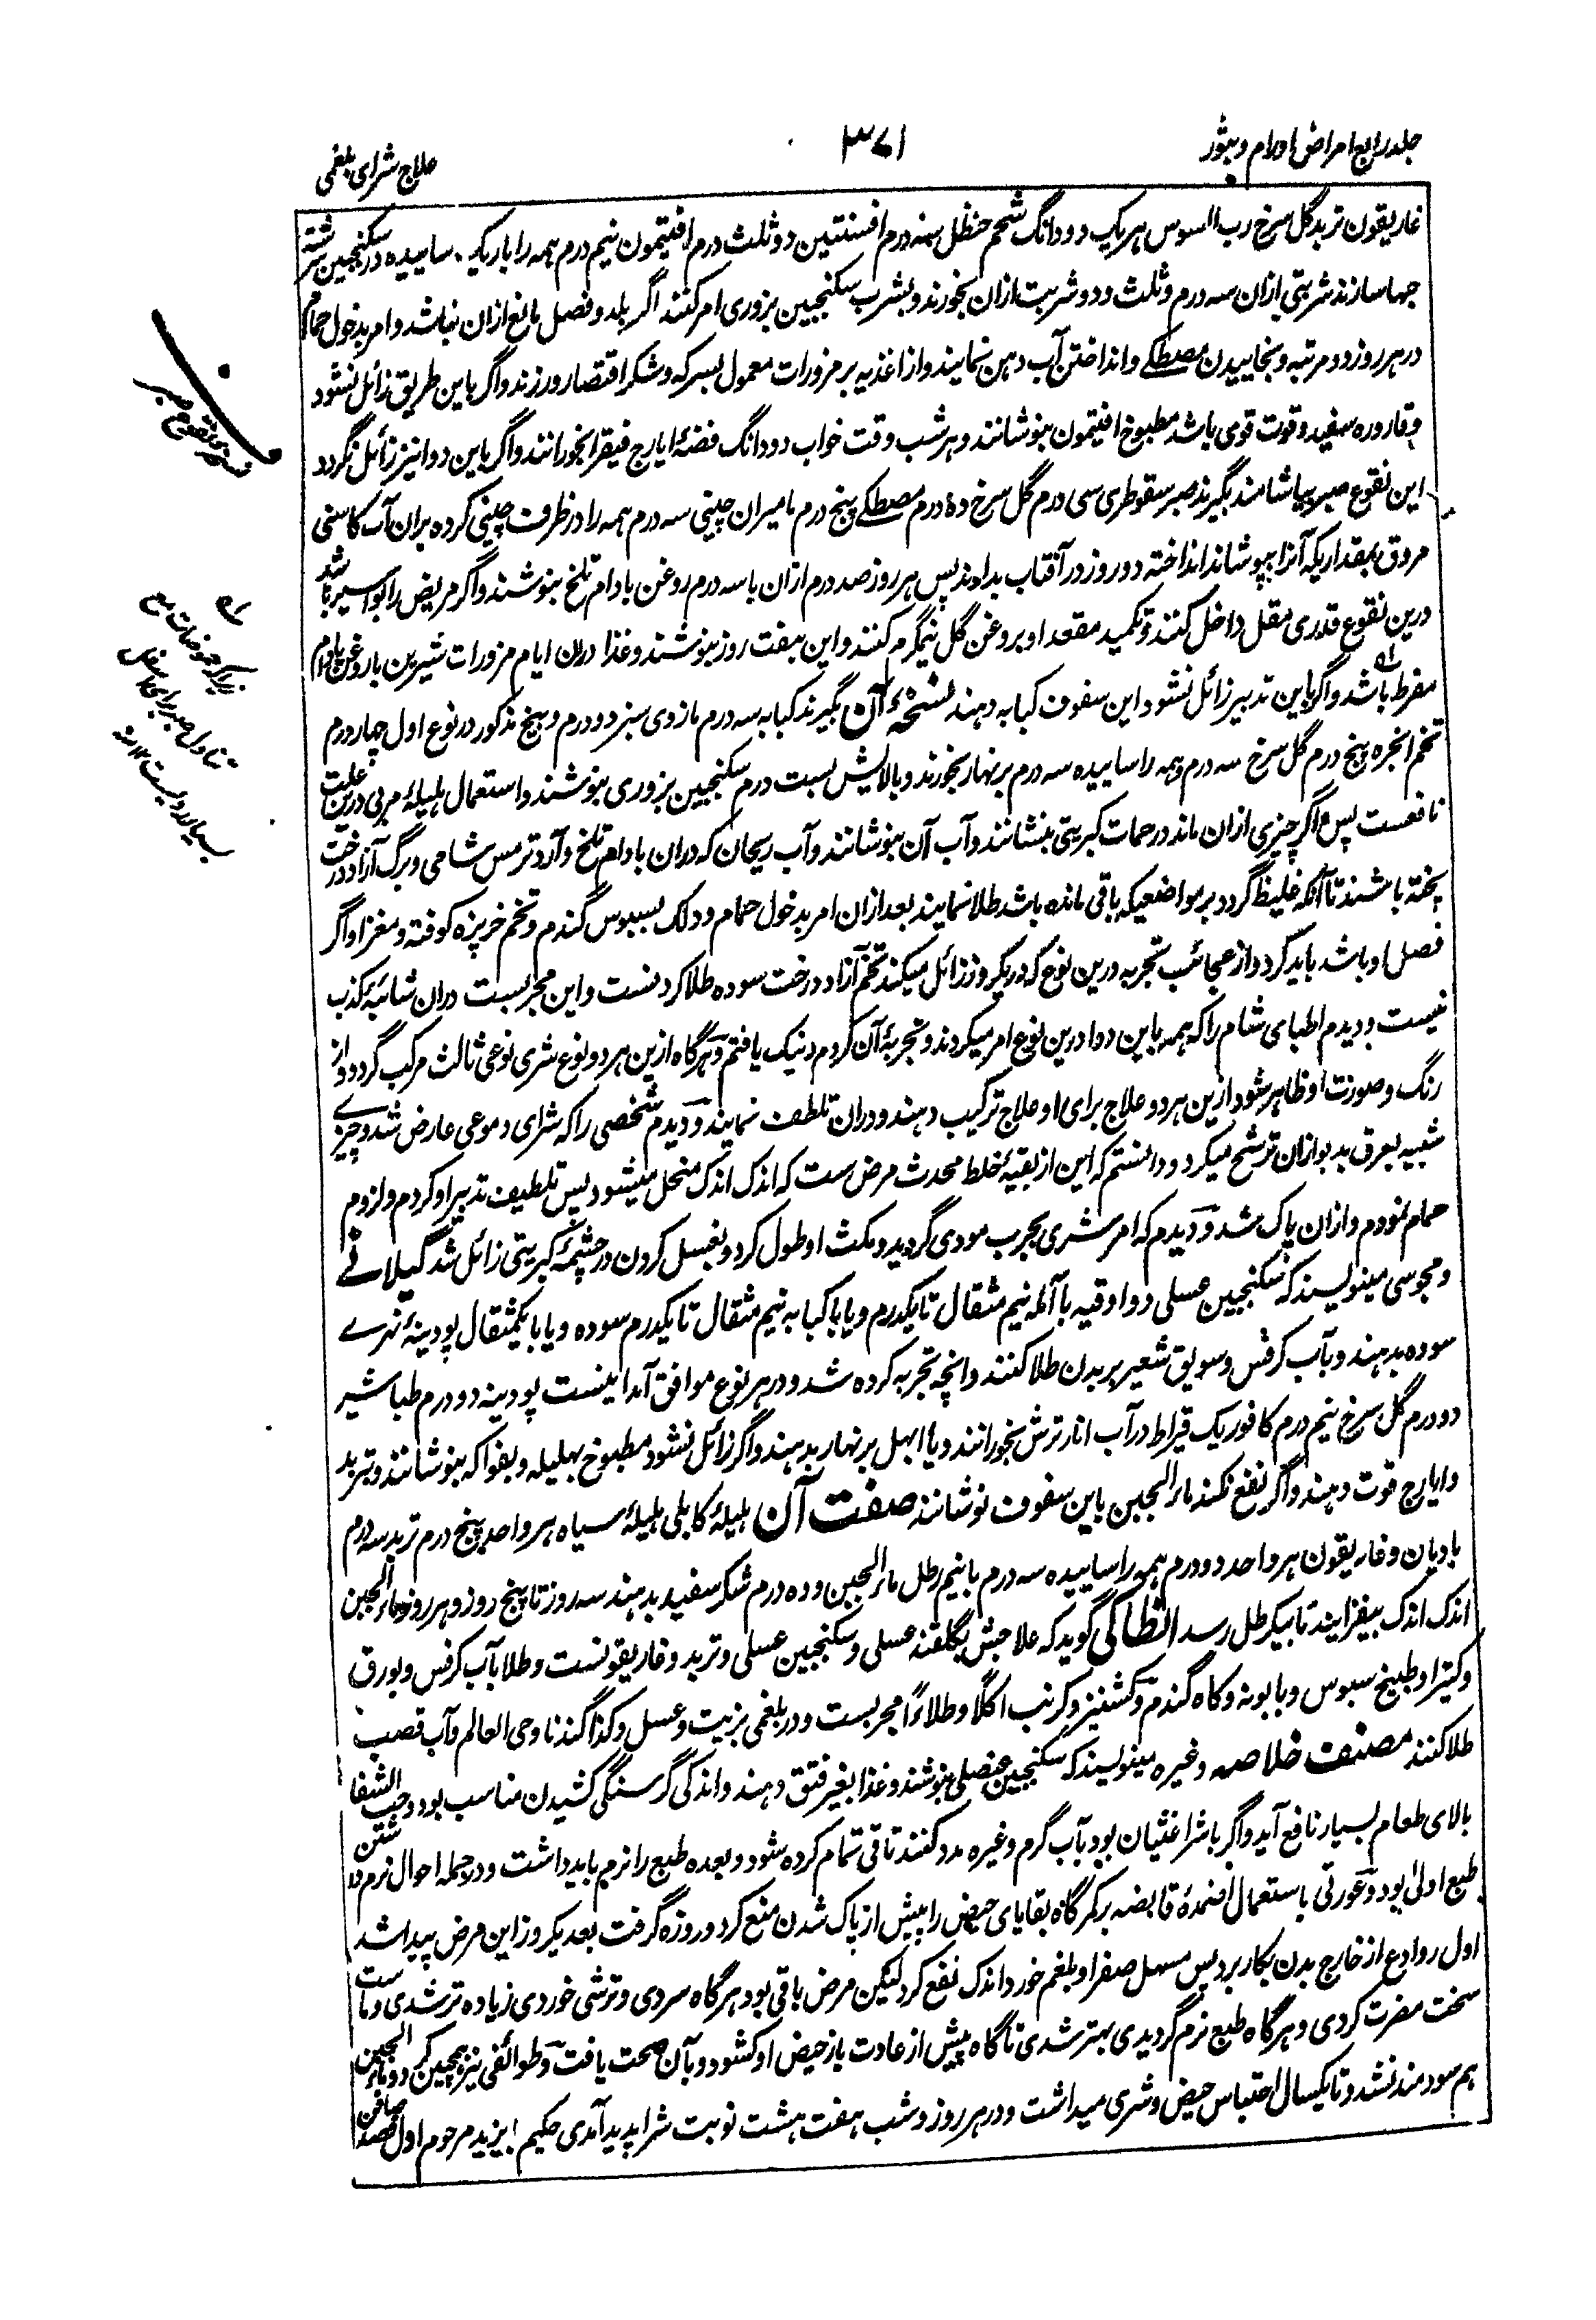 جلد رابع امراض اورام و بثور
۳۷۱
علاج شرای بلغمی
غاریقون تربد گل سرخ رب السوس هریک دو دانگ شحم حنظل سه درم افسنتین دو ثلث درم افتیمون نیم درم همه را باریک ساییده در سکنجبین سرشته
حبها سازند شربتی ازان سه درم و ثلث و دو شربت ازان بخورند و بشرب سکنجبین بزوری امر کنند اگر بلد و فصل مانع ازان نباشد و امر بدخول حمام
در هر روز دو مرتبه و بخاییدن مصطکے و انداختن آب دهن نمایند و از اغذیه بر مزورات معمول بسرکه و شکر اقتصار ورزند و اگر باین طریق زائل نشود
و قاروره سفید و قوت قوی باشد مطبوخ افتیمون بنوشانند و هر شب وقت خواب دو دانگ فضهٔ ایارج فیقرا بخورانند و اگر باین دوا نیز زائل نگردد
این نقوع صبر بیاشامند بگیرند صبر سقوطری سی درم گل سرخ ده درم مصطکے پنج درم مامیران چینی سه درم همه را در ظرف چینی کرده بران آب کاسنی
مروق بمقداریکه آنرا بپوشاند انداخته دو روز در آفتاب بدارند پس هر روز صد درم ازان با سه درم روغن بادام تلخ بنوشند و اگر مریض را بواسیر باشد
درین نقوع قدری مقل داخل کنند و تکمید مقعد او بروغن گل نیمگرم کنند و این هفت روز بنوشند و غذا دران ایام مزورات شیرین با روغن بادام
مفرط باشد و اگر باین تدبیر زائل نشود این سفوف کبابه دهند نسخهٔ آن بگیرند کبابه سه درم مازوی سبز دو درم دبیخ مذکور در نوع اول چهار درم
تخم انجره پنج درم گل سرخ سه درم و همه را ساییده سه درم بر نهار بخورند و بالایش بست درم سکنجبین بزوری بنوشند و استعمال هلیلهٔ مربی درین علت
نافعست پس اگر چیزی ازان ماند در حمات کبریتی بنشانند و آب آن بنوشانند و آب ریحان که دران بادام تلخ و آرد ترمس شامی و برگ آزاد درخت
پخته باشند تا آنکه غلیظ گردد بر مواضعیکه باقی مانده باشد طلا نمایند بعد ازان امر بدخول حمام و دلک بسبوس گندم و تخم خرپزه کوفته و مغز او اگر
فصل او باشد باید کرد و از عجائب تجربه درین نوع که در یکروز زائل میکند تخم آزاد درخت سوده طلا کردنست و این مجربست دران شائبهٔ کذب
نیست و دیدم اطبای شام را که همه باین دوا درین نوع امر میکردند و تجربهٔ آن کردم و نیک یافتم و هرگاه ازین هر دو نوع شری نوعی ثالث مرکب گردد و از
رنگ و صورت او ظاهر شود ازین هر دو علاج برای او علاج ترکیب دهند و دران تلطف نمایند و دیدم شخصی را که شرای دموی عارض شد و چیزے
شبیه بعرق بدبو ازان ترشح میکرد و دانستم که این از بقیهٔ خلط محدث مرض ست که اندک اندک منحل میشود پس تلطیف تدبیر او کردم و لزوم
حمام نمودم و ازان پاک شد و دیدم که امر شری بجرب مودی گردید و مکث او طول کرد و بغسل کردن در چشمهٔ کبریتی زائل شد گیلانے
و مجوسی مینویسند که سکنجبین عسلی دو اوقیه با آمله نیم مثقال تا یکدرم و یا با کبابه نیم مثقال تا یکدرم سوده و یا با یکمثقال پودینهٔ نهرے
سوده بدهند و بآب کرفس و سویق شعیر بر بدن طلا کنند و انچه تجربه کرده شد و در هر نوع موافق آمد اینست پودینه دو درم طباشیر
دو درم گل سرخ نیم درم کافور یک قیراط در آب انار ترش بخورانند و یا ابهل بر نهار بدهند و اگر زائل نشود مطبوخ بهلیله و بفواکه بنوشانند و بتربد
و ایارج قوت دهند و اگر نفع نکند ماء الجبن باین سفوف نوشانند صفت آن هلیلهٔ کابلی هلیلهٔ سیاه هر واحد پنج درم تربد سه درم
بادیان و غاریقون هر واحد دو درم همه را ساییده سه درم با نیم رطل ماء الجبن و ده درم شکر سفید بدهند سه روز تا پنج روز و هر روز ماء الجبن
اندک اندک بیفزایند تا بیکرطل رسد انطاکی گوید که علاجش بگلقند عسلی و سکنجبین عسلی و تربد و غاریقونست و طلا بآب کرفس و بورق
و کتیرا و طبیخ سبوس و بابونه و کاه گندم و کشنیز و کرنب اکلًا و طلاءً مجربست و در بلغمی بزیت و عسل و کذا گندنا و حی العالم و آب قصب
طلا کنند مصنف خلاصه و غیره مینویسند که سکنجبین عنصلی بنوشند و غذا بغیر فتق دهند و اندکی گرسنگی کشیدن مناسب بود و حب الشفا
بالای طعام بسیار نافع آید و اگر با شرا غثیان بود بآب گرم و غیره مدد کنند تا قی تمام کرده شود و بعده طبع را نرم باید داشت و در جمله احوال نرم داشتن
طبع اولی بود و عورتی باستعمال اضمدهٔ قابضه بر کمرگاه بقایای حیض را پیش از پاک شدن منع کرد و روزه گرفت بعد یکروز این مرض پیدا شد
اول روادع از خارج بدن بکار برد پس مسهل صفرا و بلغم خورد اندک نفع کرد لیکن مرض باقی بود هرگاه سردی و ترشی خوردی زیاده تر شدی و ماست
سخت مضرت کردی و هرگاه طبع نرم گردیدی بهتر شدی تا گاه پیش از عادت باز حیض او کشود و بآن صحت یافت و طوائفی نیز همچنین کرد و ماء الجبن
هم سودمند نشد و تا یکسال احتباس حیض و شری میداشت و در هر روز و شب هفت هشت نوبت شرا پدید آمدی حکیم بایزید مرحوم اول فصد صافن
نسخهٔ نقوع صبر
زیرا که حموضات مع
تناول صبر برای
بسیار ردیست ۱۲ منه